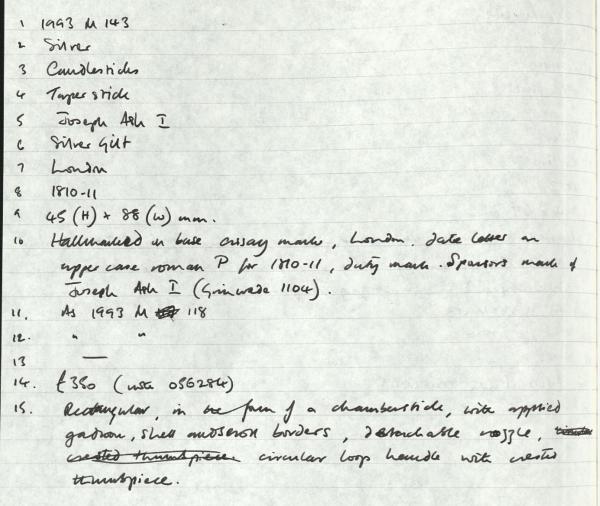 1 1993 M 143
2 Silver
3 Candlesticks
4 Taper stick
5 Joseph Ash I
6 Silver Gilt
7 London
8 1810-11
9 45 (H) + 88 (W) mm.
10 Hallmarked on base assay marks, London. date letter an
upper case roman P for 1810-11, duty mark. Sponsors mark of
Joseph Ash I (Grimwade 1104).
11. As 1993 M 118
12. " "
13 —
14. £350 (insce 056284)
15. Rectangular, in the form of a chamberstick, with applied
gadroon, shell and scroll borders, detachable nozzle,
crested thumbpiece circular loop handle with crested
thumbpiece.